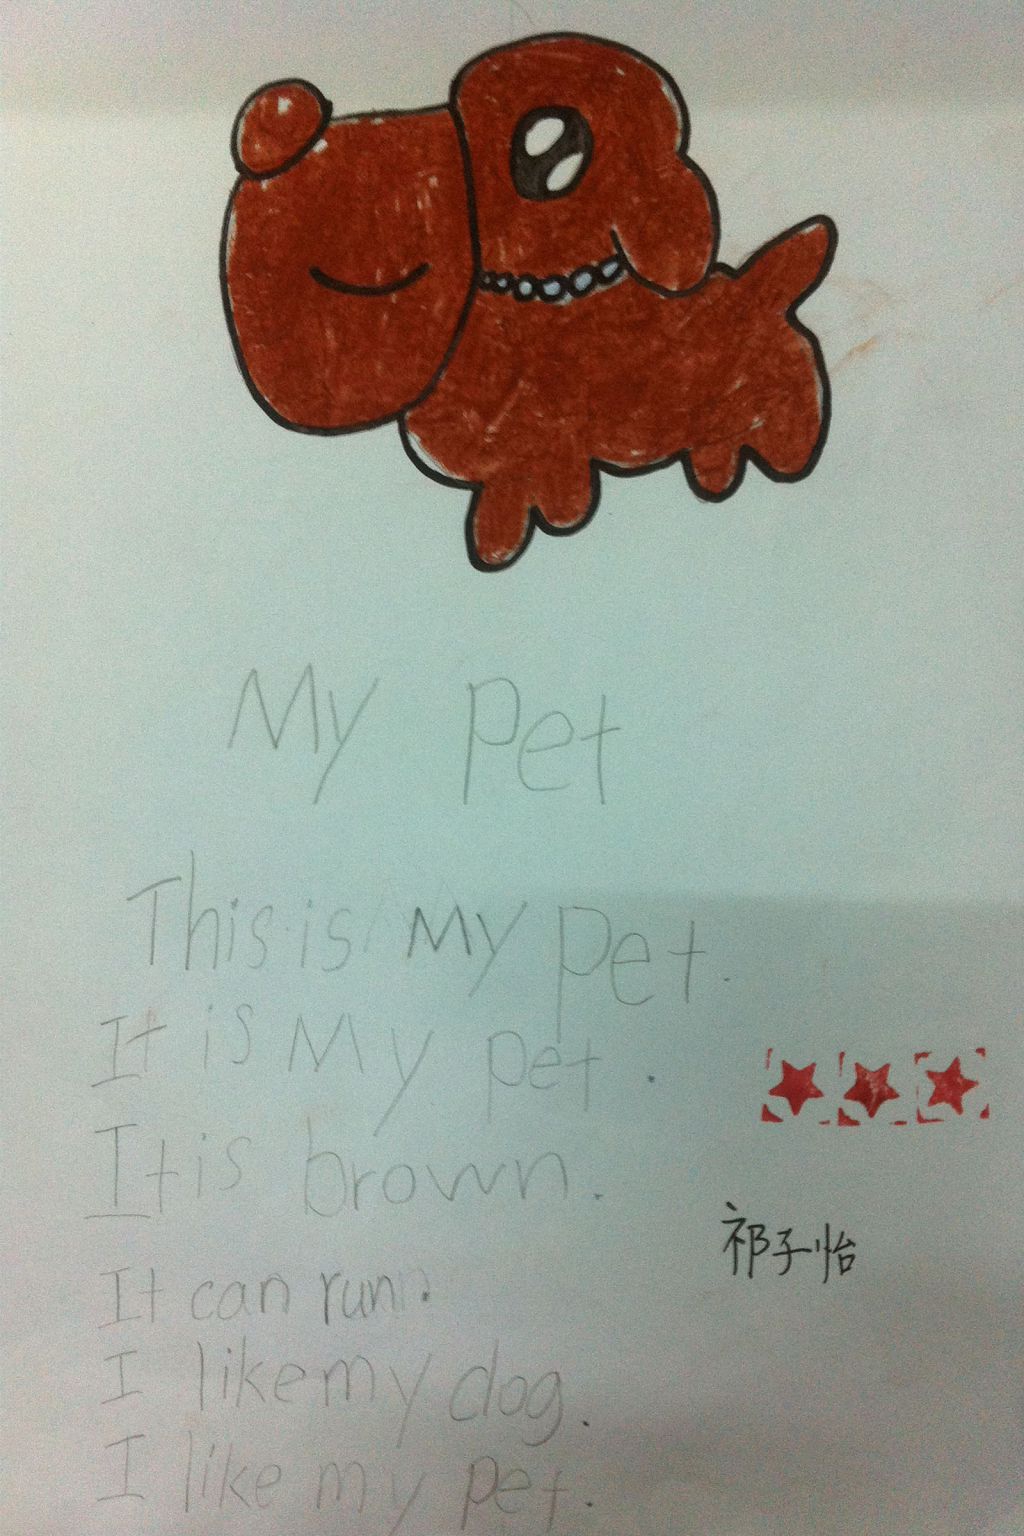 My Pet
This is My Pet.
It is My pet.
It is brown.
祁子怡
It can run.
I like my dog.
I like my pet.